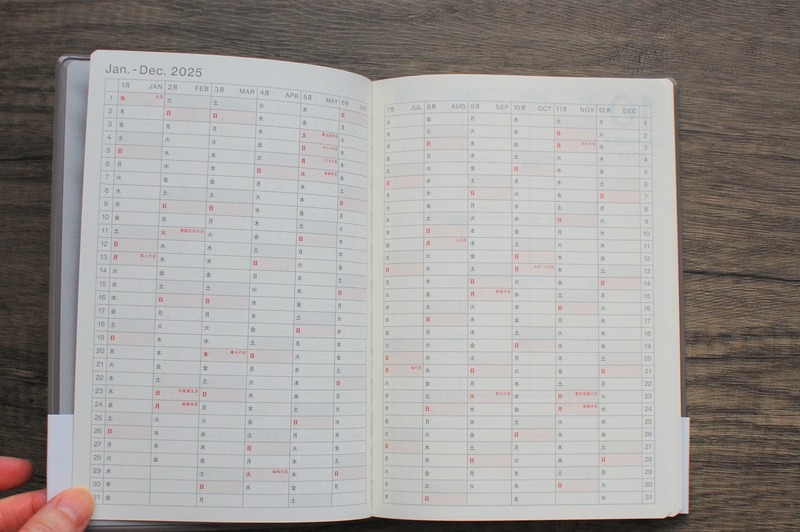 Jan. - Dec. 2025
1月 JAN 2月 FEB 3月 MAR 4月 APR 5月 MAY 6月 JUN
1 水 元日 土 土 火 木 日
2 木 日 日 水 金 月
3 金 月 月 木 土 憲法記念日 火
4 土 火 火 金 日 みどりの日 水
5 日 水 水 土 月 こどもの日 木
6 月 木 木 日 火 振替休日 金
7 火 金 金 月 水 土
8 水 土 土 火 木 日
9 木 日 日 水 金 月
10 金 月 月 木 土 火
11 土 火 建国記念の日 火 金 日 水
12 日 水 水 土 月 木
13 月 成人の日 木 木 日 火 金
14 火 金 金 月 水 土
15 水 土 土 火 木 日
16 木 日 日 水 金 月
17 金 月 月 木 土 火
18 土 火 火 金 日 水
19 日 水 水 土 月 木
20 月 木 木 春分の日 日 火 金
21 火 金 金 月 水 土
22 水 土 土 火 木 日
23 木 日 天皇誕生日 日 水 金 月
24 金 月 振替休日 月 木 土 火
25 土 火 火 金 日 水
26 日 水 水 土 月 木
27 月 木 木 日 火 金
28 火 金 金 月 水 土
29 水 土 火 昭和の日 木 日
30 木 日 水 金 月
31 金 月 土
7月 JUL 8月 AUG 9月 SEP 10月 OCT 11月 NOV 12月 DEC
火 金 月 水 土 月 1
水 土 火 木 日 火 2
木 日 水 金 月 文化の日 水 3
金 月 木 土 火 木 4
土 火 金 日 水 金 5
日 水 土 月 木 土 6
月 木 日 火 金 日 7
火 金 月 水 土 月 8
水 土 火 木 日 火 9
木 日 水 金 月 水 10
金 月 山の日 木 土 火 木 11
土 火 金 日 水 金 12
日 水 土 月 スポーツの日 木 土 13
月 木 日 火 金 日 14
火 金 月 敬老の日 水 土 月 15
水 土 火 木 日 火 16
木 日 水 金 月 水 17
金 月 木 土 火 木 18
土 火 金 日 水 金 19
日 水 土 月 木 土 20
月 海の日 木 日 火 金 日 21
火 金 月 水 土 月 22
水 土 火 秋分の日 木 日 勤労感謝の日 火 23
木 日 水 金 月 振替休日 水 24
金 月 木 土 火 木 25
土 火 金 日 水 金 26
日 水 土 月 木 土 27
月 木 日 火 金 日 28
火 金 月 水 土 月 29
水 土 火 木 日 火 30
木 日 金 水 31